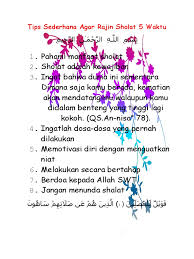 Tips Sederhana Agar Rajin Sholat 5 Waktu
بِسْمِ اللَّهِ الرَّحْمَنِ الرَّحِيمِ
1. Pahami manfaat sholat
2. Sholat adalah kewajiban
3. Ingat bahwa dunia ini sementara
Dimana saja kamu berada, kematian
akan mendatangimu walaupun kamu
didalam benteng yang tinggi lagi
kokoh. (QS.An-nisa' 78).
4. Ingatlah dosa-dosa yang pernah
dilakukan
5. Memotivasi diri dengan menguatkan
niat
6. Melakukan secara bertahap
7. Berdoa kepada Allah SWT
8. Jangan menunda sholat
فَوَيْلٌ لِّلْمُصَلِّينَ (٤) الَّذِينَ هُمْ عَن صَلَاتِهِمْ سَاهُونَ